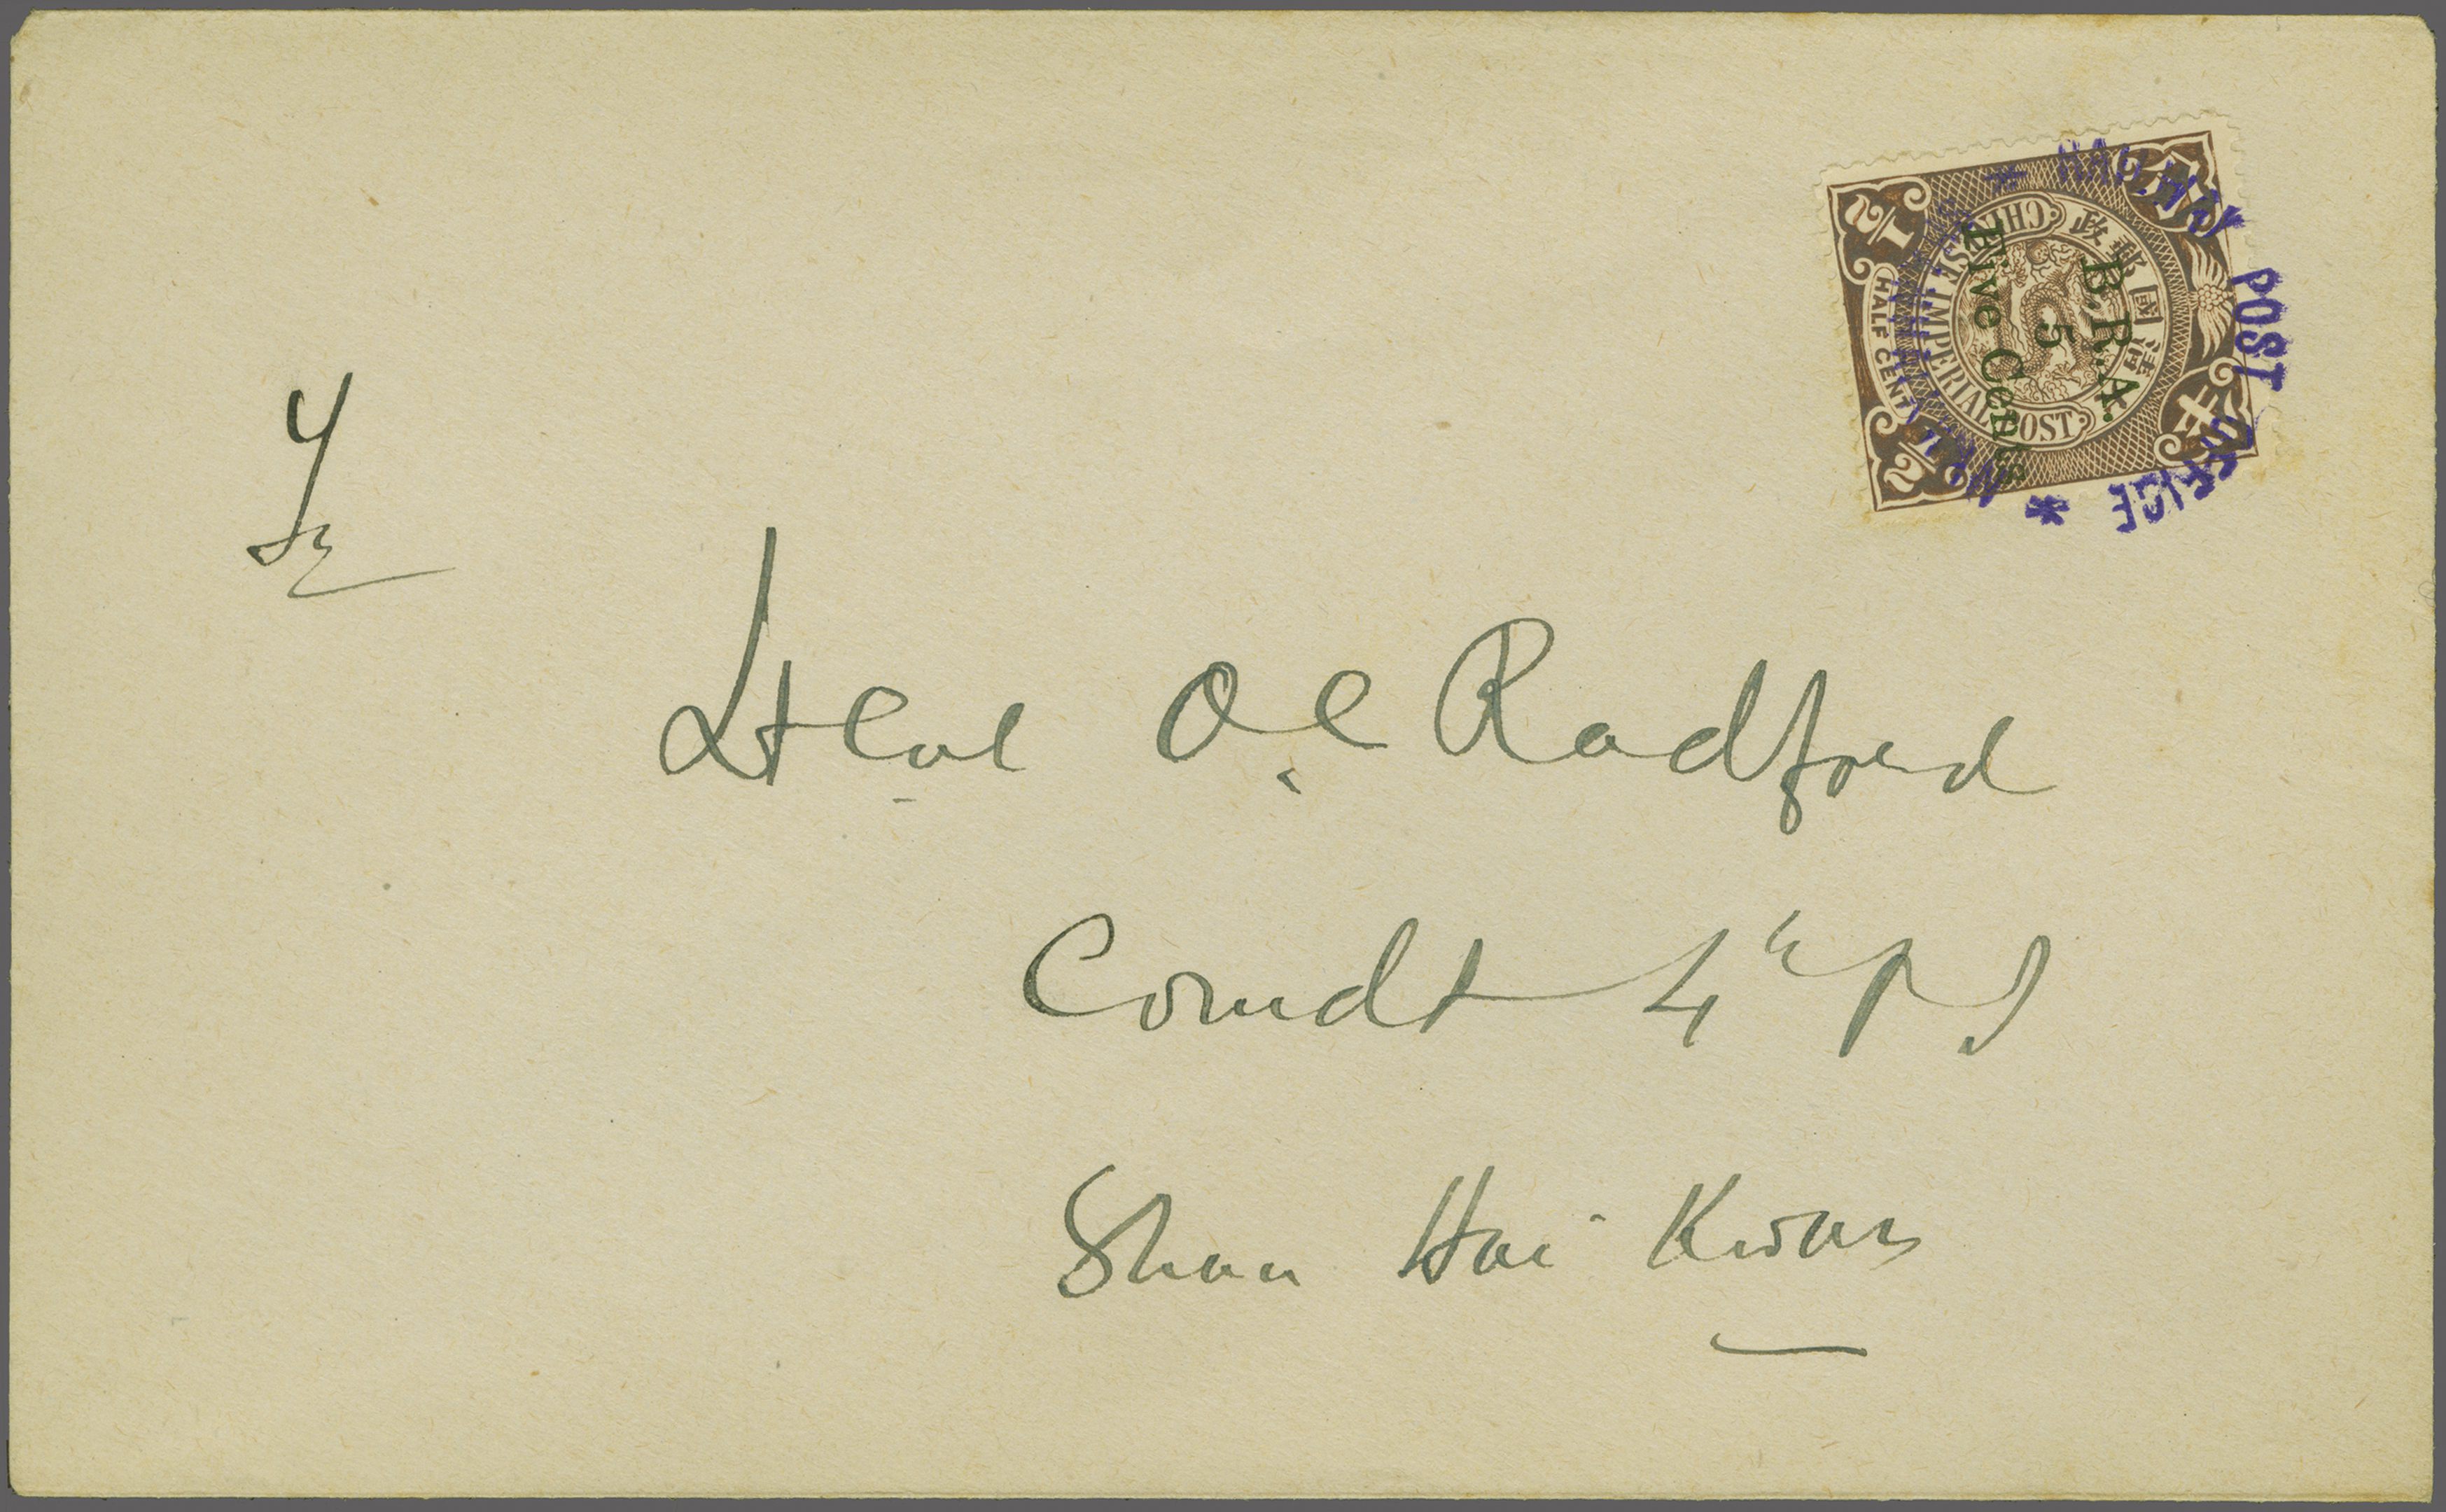 RAILWAY POST OFFICE
大清國郵政
CHINESE IMPERIAL POST
B.R.A.
5
Five Cents
1/2
HALF CENT
1/2
To
Lt Col O.C Radford
Comdt 4th P I
Shan Hai Kwan